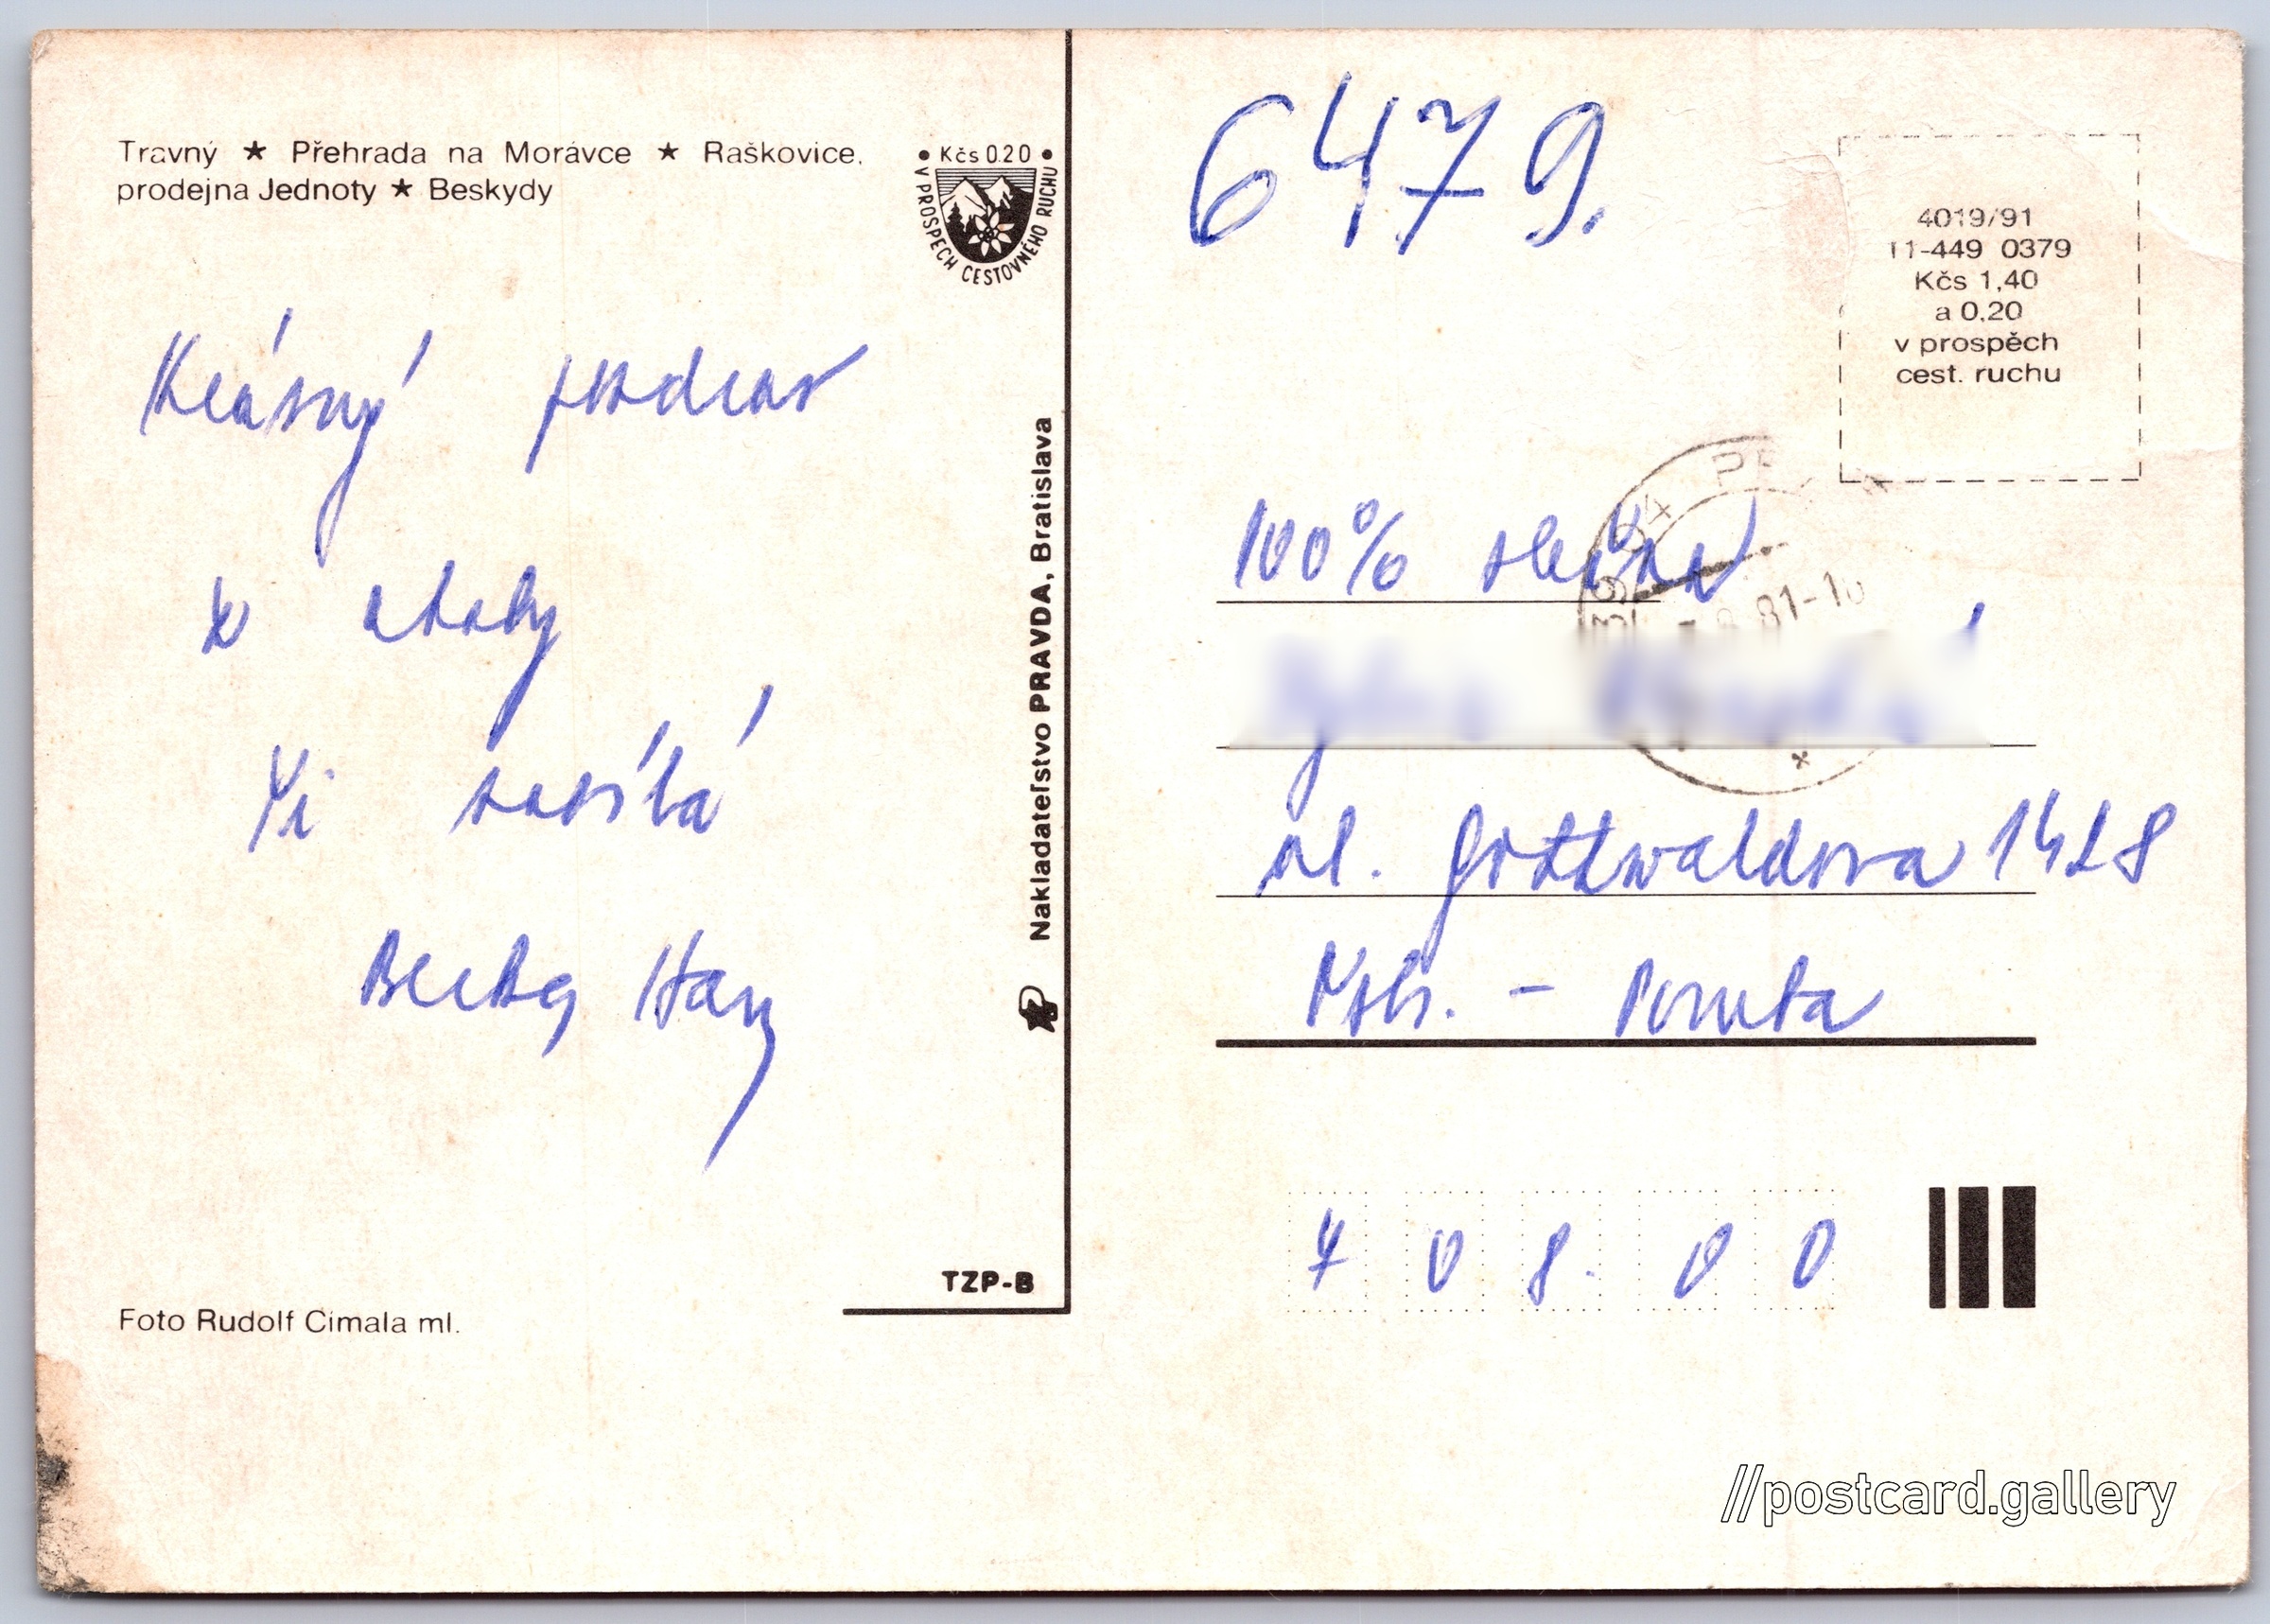 Travný ★ Přehrada na Morávce ★ Raškovice,
prodejna Jednoty ★ Beskydy
• Kčs 0.20 •
V PROSPECH CESTOVNÉHO RUCHU
Krásný pozdrav
z chaty
Ti zasílá
Nakladateľstvo PRAVDA, Bratislava
TZP-B
Foto Rudolf Cimala ml.
6479.
4019/91
11-449 0379
Kčs 1,40
a 0,20
v prospěch
cest. ruchu
100% slečna
ul. Gottwaldova 1428
- Poruba
708 00
//postcard.gallery